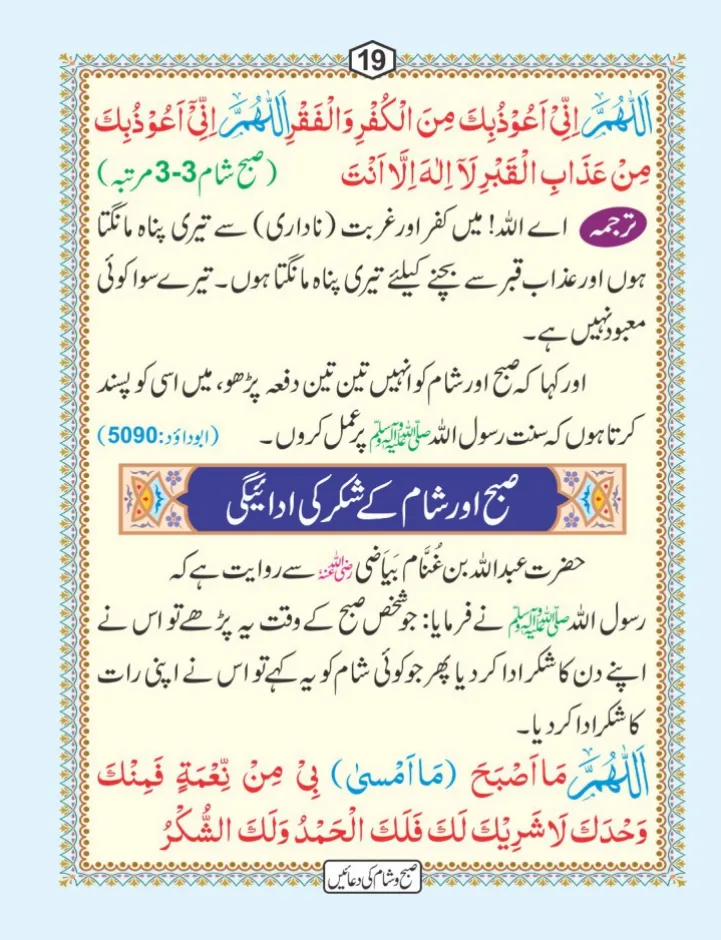 19
اَللّٰهُمَّ اِنِّيْ اَعُوْذُبِكَ مِنَ الْكُفْرِ وَالْفَقْرِ اَللّٰهُمَّ اِنِّيْٓ اَعُوْذُبِكَ
مِنْ عَذَابِ الْقَبْرِ لَآ اِلٰهَ اِلَّا اَنْتَ (صبح شام 3-3 مرتبہ)
ترجمہ اے اللہ! میں کفر اور غربت (ناداری) سے تیری پناہ مانگتا
ہوں اور عذاب قبر سے بچنے کیلئے تیری پناہ مانگتا ہوں۔ تیرے سوا کوئی
معبود نہیں ہے۔
اور کہا کہ صبح اور شام کو انہیں تین تین دفعہ پڑھو، میں اسی کو پسند
کرتا ہوں کہ سنت رسول اللہ صلی اللہ علیہ وآلہ وسلم پر عمل کروں۔ (ابوداؤد:5090)
صبح اور شام کے شکر کی ادائیگی
حضرت عبداللہ بن غُنَّام بَیَاضی رضی اللہ عنہ سے روایت ہے کہ
رسول اللہ صلی اللہ علیہ وآلہ وسلم نے فرمایا: جو شخص صبح کے وقت یہ پڑھے تو اس نے
اپنے دن کا شکر ادا کر دیا پھر جو کوئی شام کو یہ کہے تو اس نے اپنی رات
کا شکر ادا کر دیا۔
اَللّٰهُمَّ مَا اَصْبَحَ (مَا اَمْسىٰ) بِيْ مِنْ نِّعْمَةٍ فَمِنْكَ
وَحْدَكَ لَا شَرِيْكَ لَكَ فَلَكَ الْحَمْدُ وَلَكَ الشُّكْرُ
صبح و شام کی دعائیں